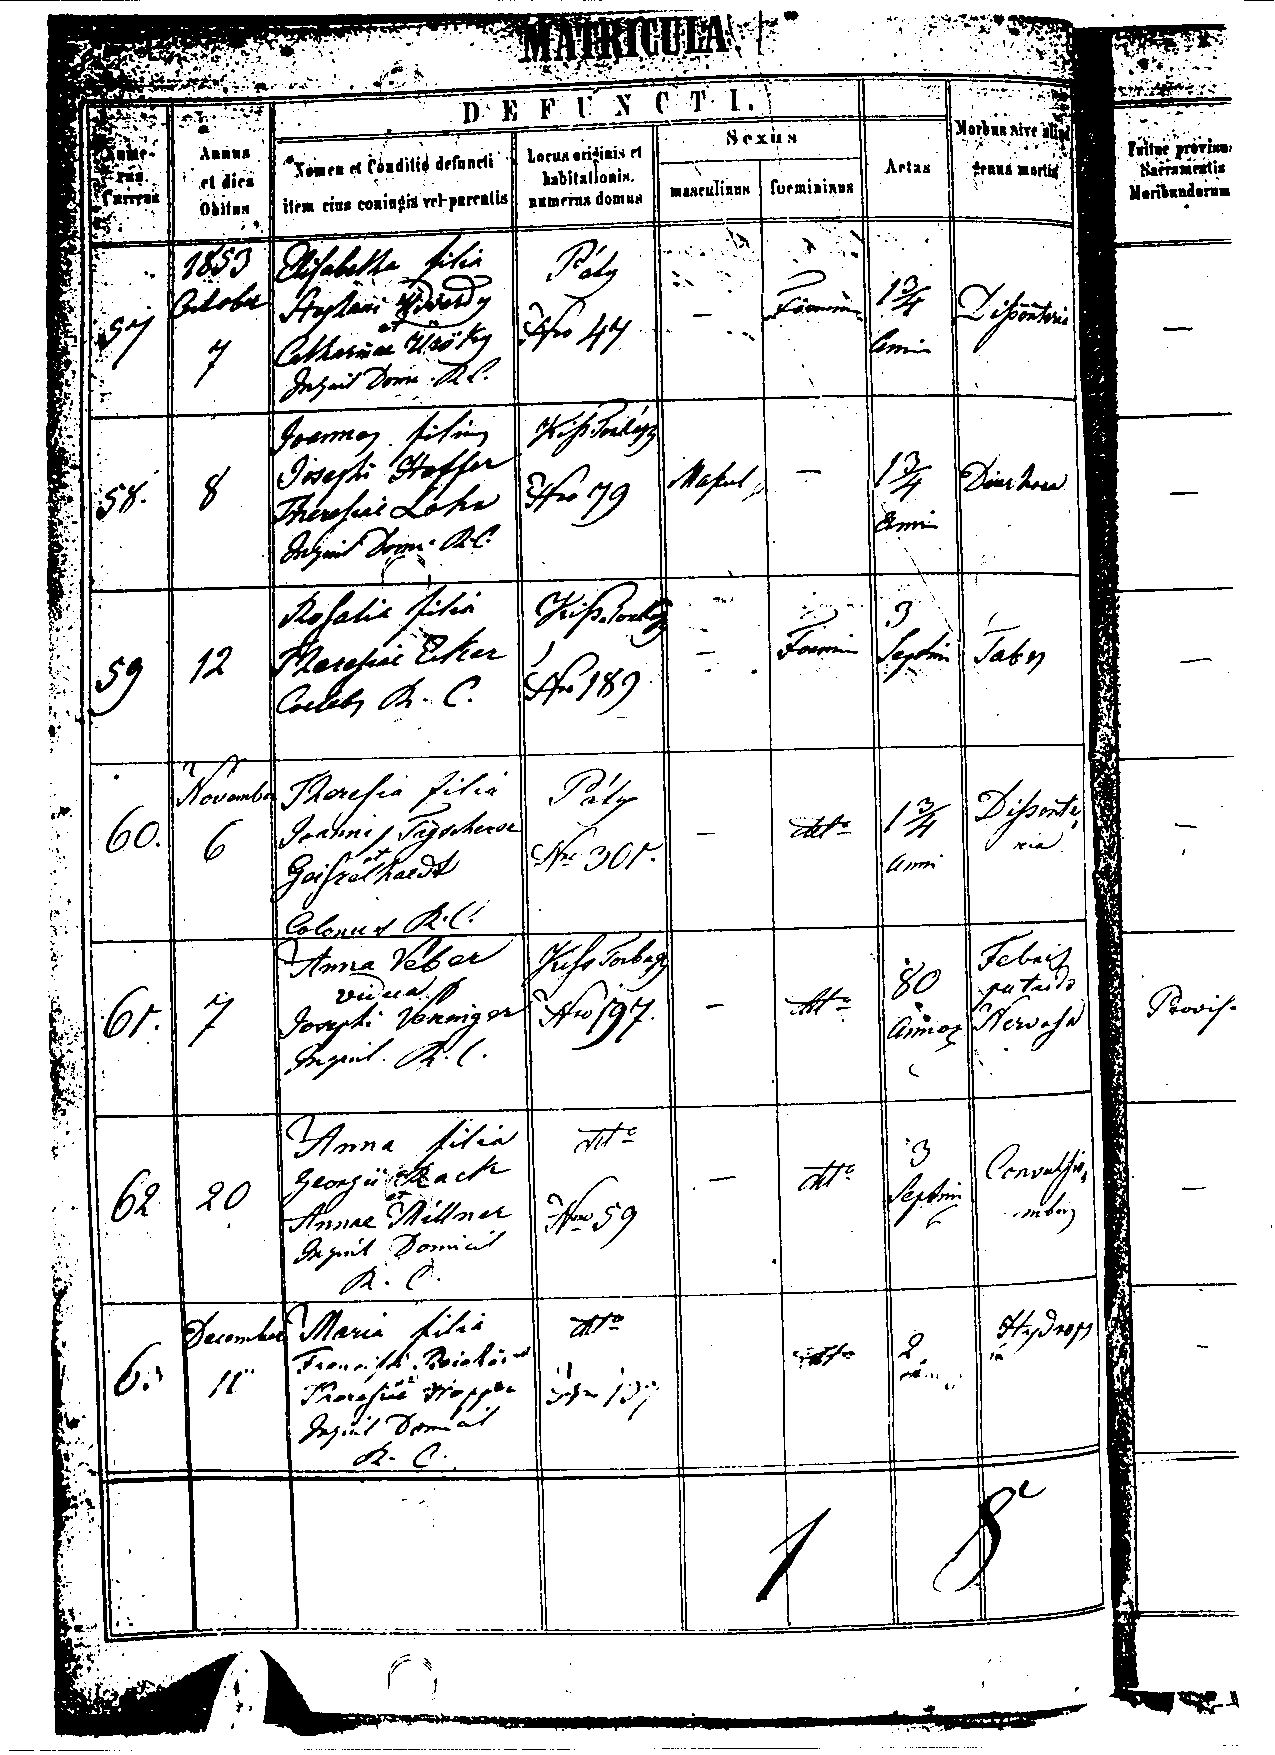 MATRICULA
DEFUNCTI.
Nume-
rus
Currens
Annus
et dies
Obitus
Nomen et Conditio defuncti
item eius coniugis vel parentis
Locus originis et
habitationis,
numerus domus
Sexus
masculinus
foemininus
Aetas
Morbus sive aliud
genus mortis
Fuitne provisus
Sacramentis
Moribundorum
57
1853
October
7
Elisabetha filia
Stephani
et
Catharinae
Inquil Dom. R.C.
Páty
Nro 47
—
Foemin
1 3/4
Anni
Dissenteria
—
58.
8
Joannes filius
Josephi Hoffer
Theresiae Lohr
Inquil Dom. R.C.
Kiss Torbágy
Nro 79
Mascul
—
1 3/4
Anni
Diarhoea
—
59
12
Rosalia filia
Theresiae Eker
Coelebs R. C.
Kiss Torbágy
Nro 189
—
Foemin
3
Septim
Tabes
—
60.
November
6
Theresia filia
Joannis
et
Colonus R.C.
Páty
Nro 301.
—
dtto
1 3/4
Anni
Dissente-
ria
—
61.
7
Anna Veber
vidua
Josephi Veninger
Inquil. R.C.
Kiss Torbágy
Nro 197.
—
dtto
80
Annos
Febris
putrido
Nervosa
Provis.
62
20
Anna filia
Georgii Rack
et
Annae Millner
Inquil Domicil
R. C.
dtto
Nro 59
—
dtto
3
Septim
Convulsio-
nibus
—
63
December
11
Maria filia
Francisci
Theresiae Hopper
Inquil Domicil
R. C.
dtto
dtto
2
Hydrops
—
1
8